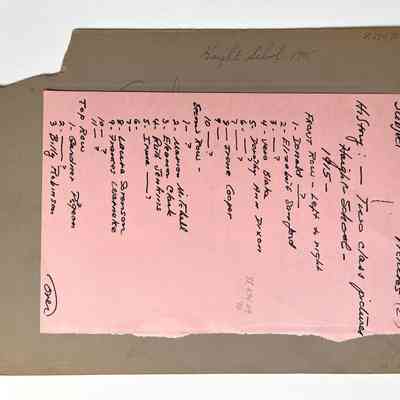 Haight School 1915
Subject Pictures (2)
History:- Two class pictures
Haight School -
1915-
Front Row - Left to right
1- Donald ?
2- Elizabeth Songford
3- ?
4- Vera Blake
5- ?
6- Dorothy Ann Dixon
7- ?
8- ?
9- Irene Cooper
10- ?
Second Row -
1- ?
2- Marion Mitchell
3- Eleanor Clark
4- Ruth Jenkins
5- Irene ?
6- ?
7- ?
8- Laura Sorenson
9- Frances
10- ?
11- ?
Top Row
1- ?
2- Gardner Pigeon
3 Billy Robinson
(over)